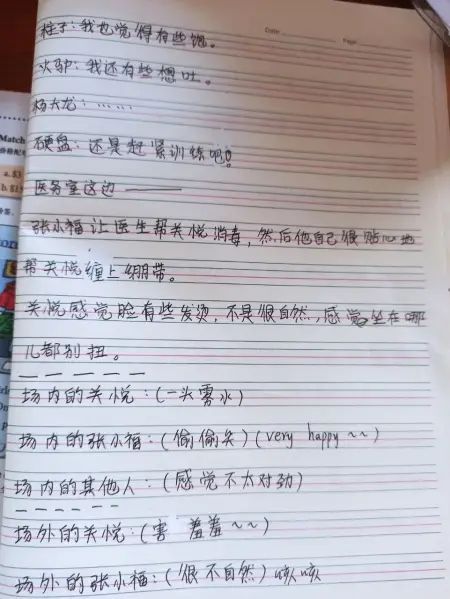 Date
Page
柱子：我也觉得有些饱。
火驴：我还有些想吐。
杨大龙：……
硬盘：还是赶紧训练吧！
Match
a. $3
医务室这边———
张小福让医生帮关悦消毒，然后他自己很贴心地
帮关悦缠上绷带。
关悦感觉脸有些发烫，不是很自然，感觉坐在哪
儿都别扭。
— — — — — —
场内的关悦：（一头雾水）
场内的张小福：（偷偷笑）（very happy ~~）
场内的其他人：（感觉不太对劲）
— — — — —
场外的关悦：（害 羞羞~~）
场外的张小福：（很不自然）咳咳